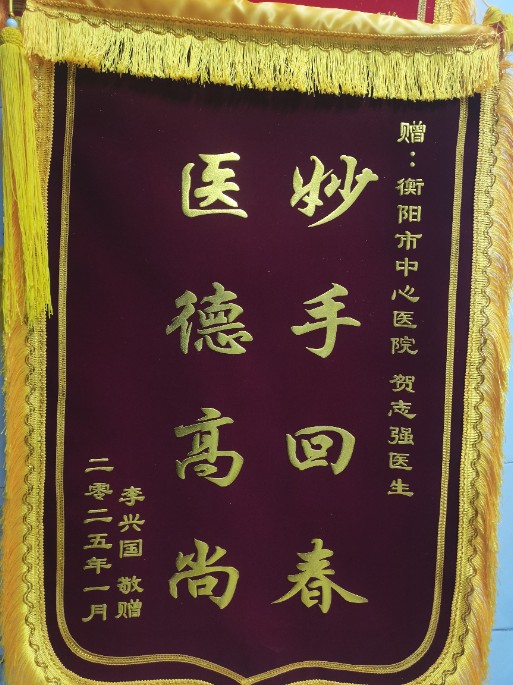 赠：衡阳市中心医院 贺志强医生
妙手回春
医德高尚
李兴国 敬赠
二零二五年一月